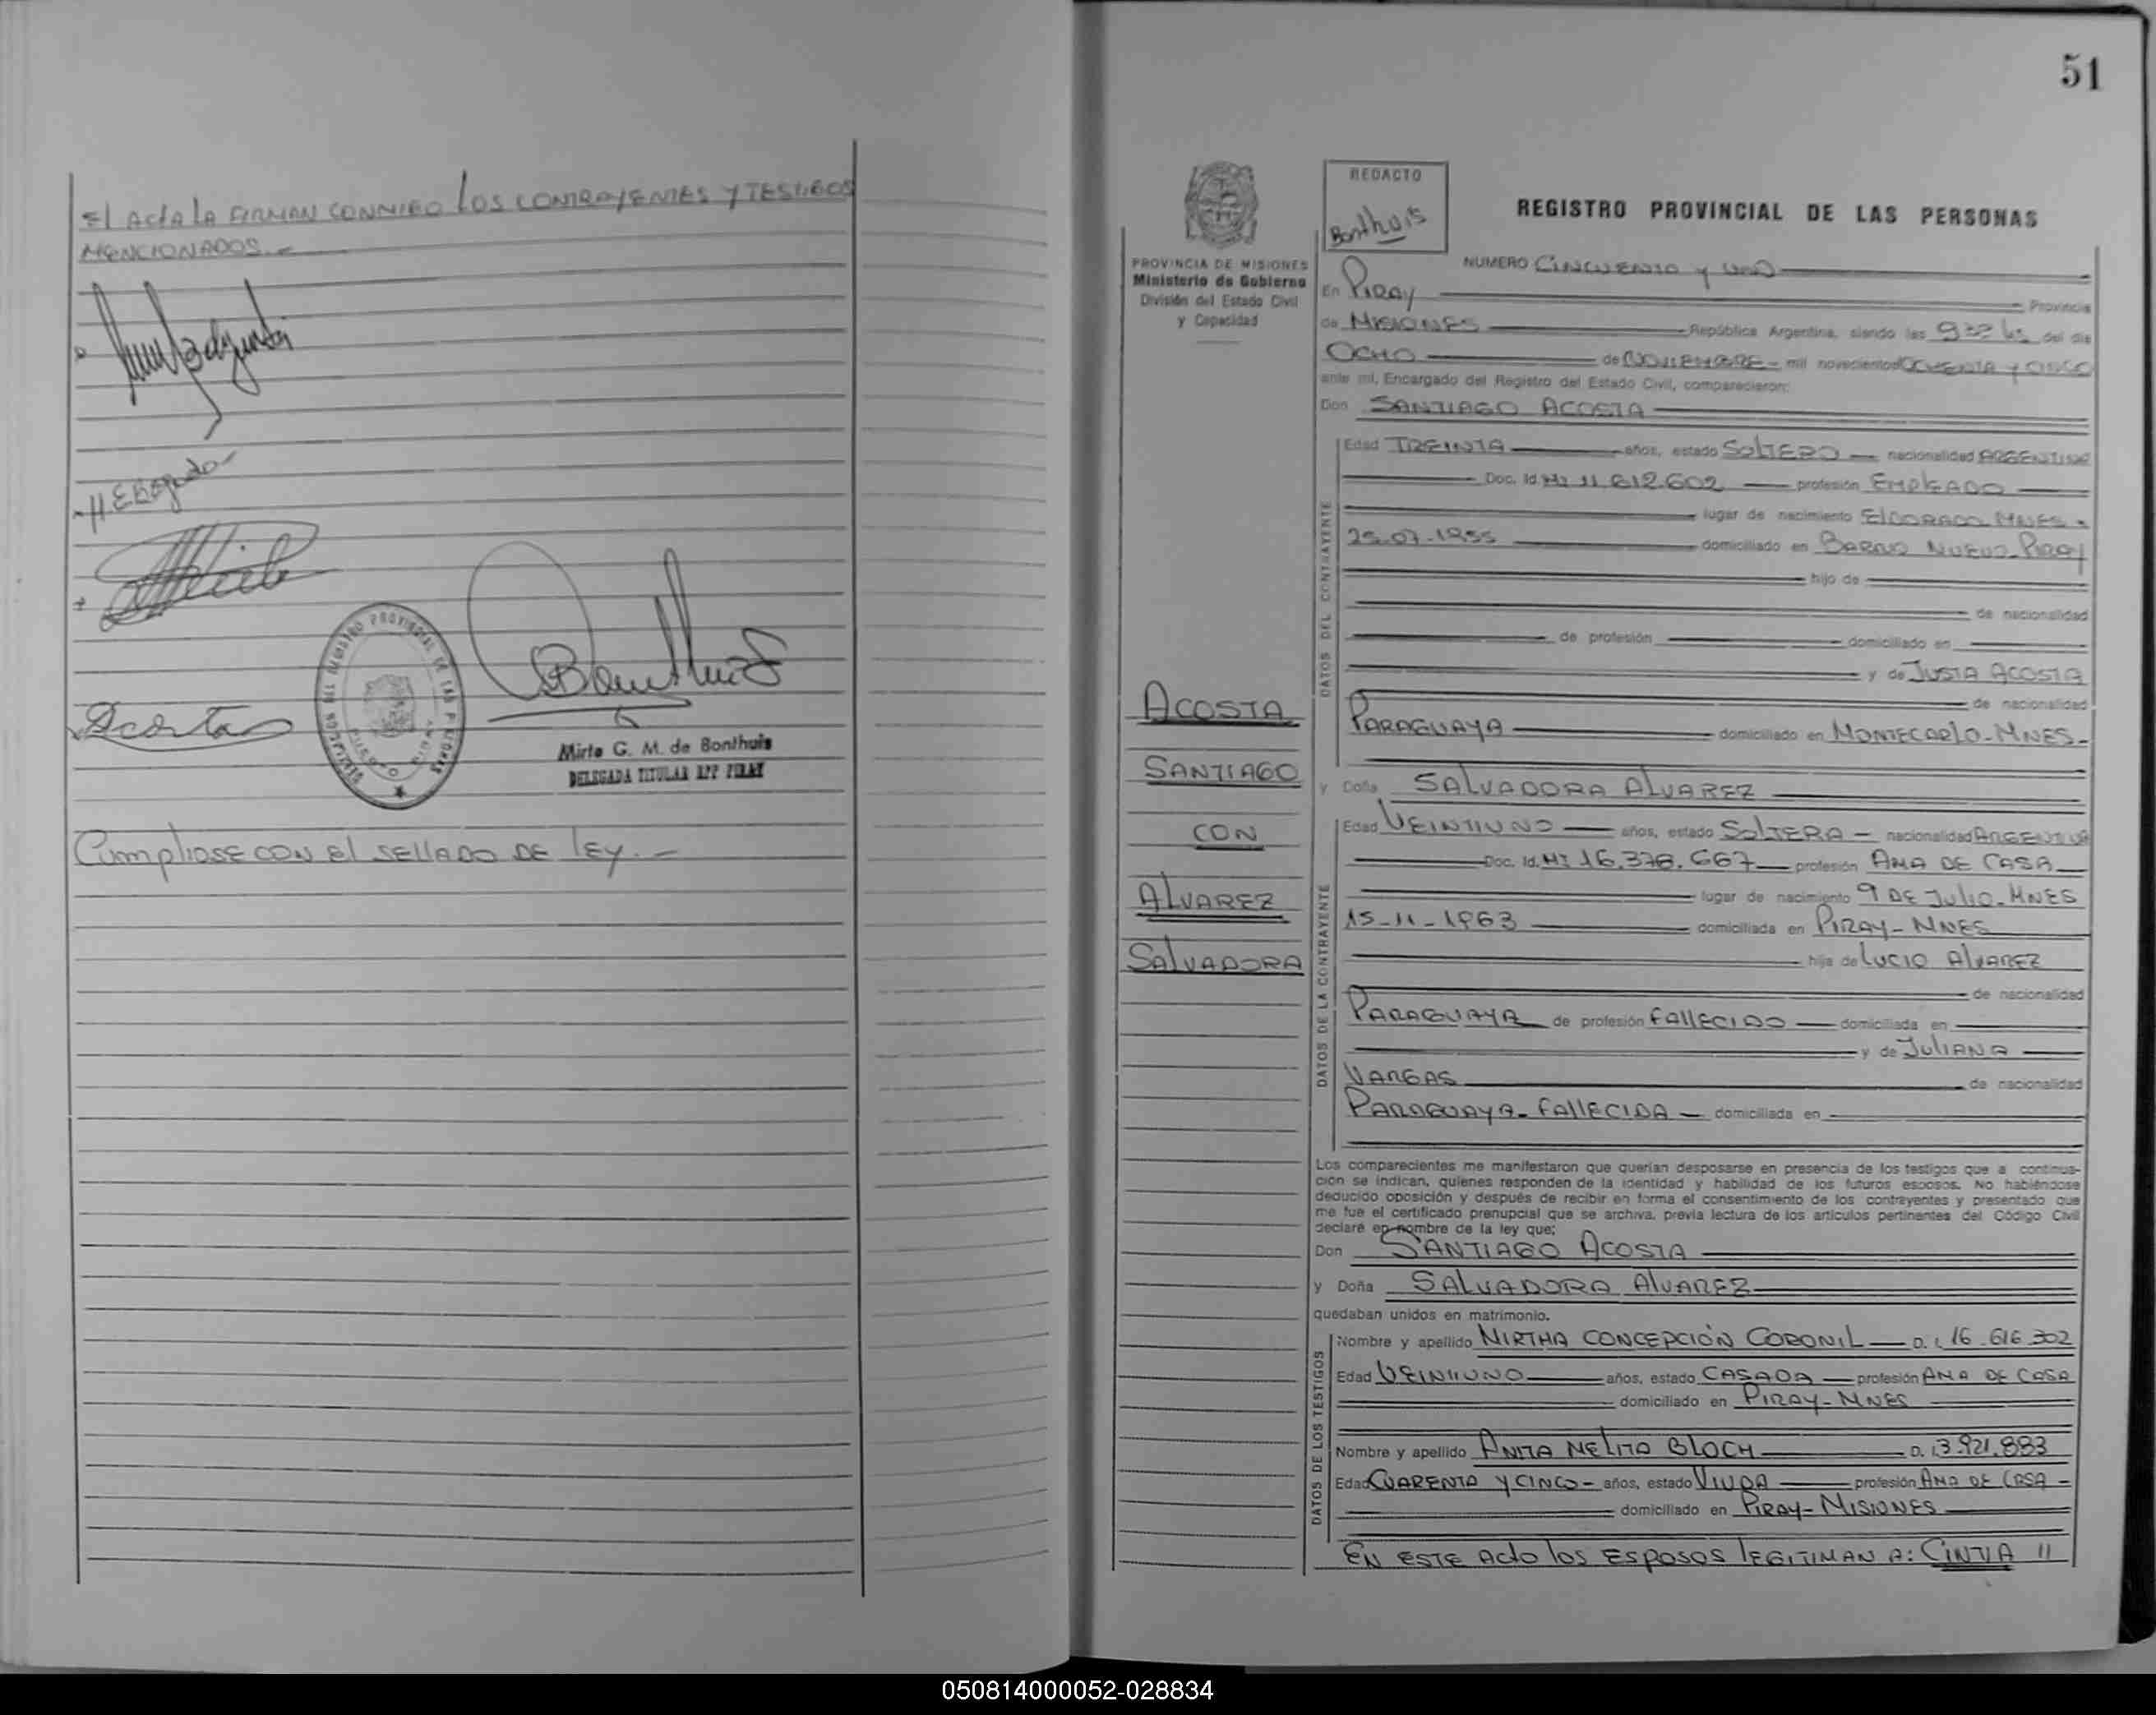 El Acta la FIRMAN CONMIGO los CONTRAYENTES Y TESTIGOS
MENCIONADOS.-
Acosta
Bonthuis
Mirta G. M. de Bonthuis
DELEGADA TITULAR RPP PIRAY
Cumpliose CON El SEllADO DE lEY.-
51
PROVINCIA DE MISIONES
Ministerio de Gobierno
División del Estado Civil
y Capacidad
REDACTO
Bonthuis
REGISTRO PROVINCIAL DE LAS PERSONAS
NUMERO CINCUENTA Y UNO
En PIRAY Provincia
de MISIONES República Argentina, siendo las 9 hs del día
OCHO de NOVIEMBRE - mil novecientos OCHENTA Y CINCO
ante mí, Encargado del Registro del Estado Civil, comparecieron:
Don SANTIAGO ACOSTA
DATOS DEL CONTRAYENTE
Edad TREINTA años, estado SOLTERO nacionalidad ARGENTINA
Doc. Id. MI 11.612.602 profesión EMPLEADO
lugar de nacimiento ELDORADO MNES.
25-07-1955 domiciliado en BARRIO NUEVO-PIRAY
hijo de
de nacionalidad
de profesión domiciliado en
y de JUSTA ACOSTA
de nacionalidad
PARAGUAYA domiciliado en MONTECARLO-MNES-
y Doña SALVADORA ALVAREZ
DATOS DE LA CONTRAYENTE
Edad VEINTIUNO años, estado SOLTERA nacionalidad ARGENTINA
Doc. Id. MI 16.378.667 profesión AMA DE CASA
lugar de nacimiento 9 DE JULIO-MNES
15-11-1963 domiciliada en PIRAY-MNES
hija de LUCIO ALVAREZ
de nacionalidad
PARAGUAYA de profesión FALLECIDO domiciliada en
y de JULIANA
VARGAS de nacionalidad
PARAGUAYA-FALLECIDA domiciliada en
ACOSTA
SANTIAGO
CON
ALVAREZ
SALVADORA
Los comparecientes me manifestaron que querían desposarse en presencia de los testigos que a continua-
ción se indican, quienes responden de la identidad y habilidad de los futuros esposos. No habiéndose
deducido oposición y después de recibir en forma el consentimiento de los contrayentes y presentado que
me fue el certificado prenupcial que se archiva, previa lectura de los artículos pertinentes del Código Civil
declaré en nombre de la ley que;
Don SANTIAGO ACOSTA
y Doña SALVADORA ALVAREZ
quedaban unidos en matrimonio.
DATOS DE LOS TESTIGOS
Nombre y apellido MIRTHA CONCEPCIÓN CORONIL D.I. 16.616.302
Edad VEINTIUNO años, estado CASADA profesión AMA DE CASA
domiciliado en PIRAY-MNES
Nombre y apellido ANITA MELITA BLOCH D.I. 3.921.883
Edad CUARENTA Y CINCO años, estado VIUDA profesión AMA DE CASA
domiciliado en PIRAY-MISIONES
EN ESTE Acto los ESPOSOS lEGITIMAN A: CINTIA //
050814000052-028834